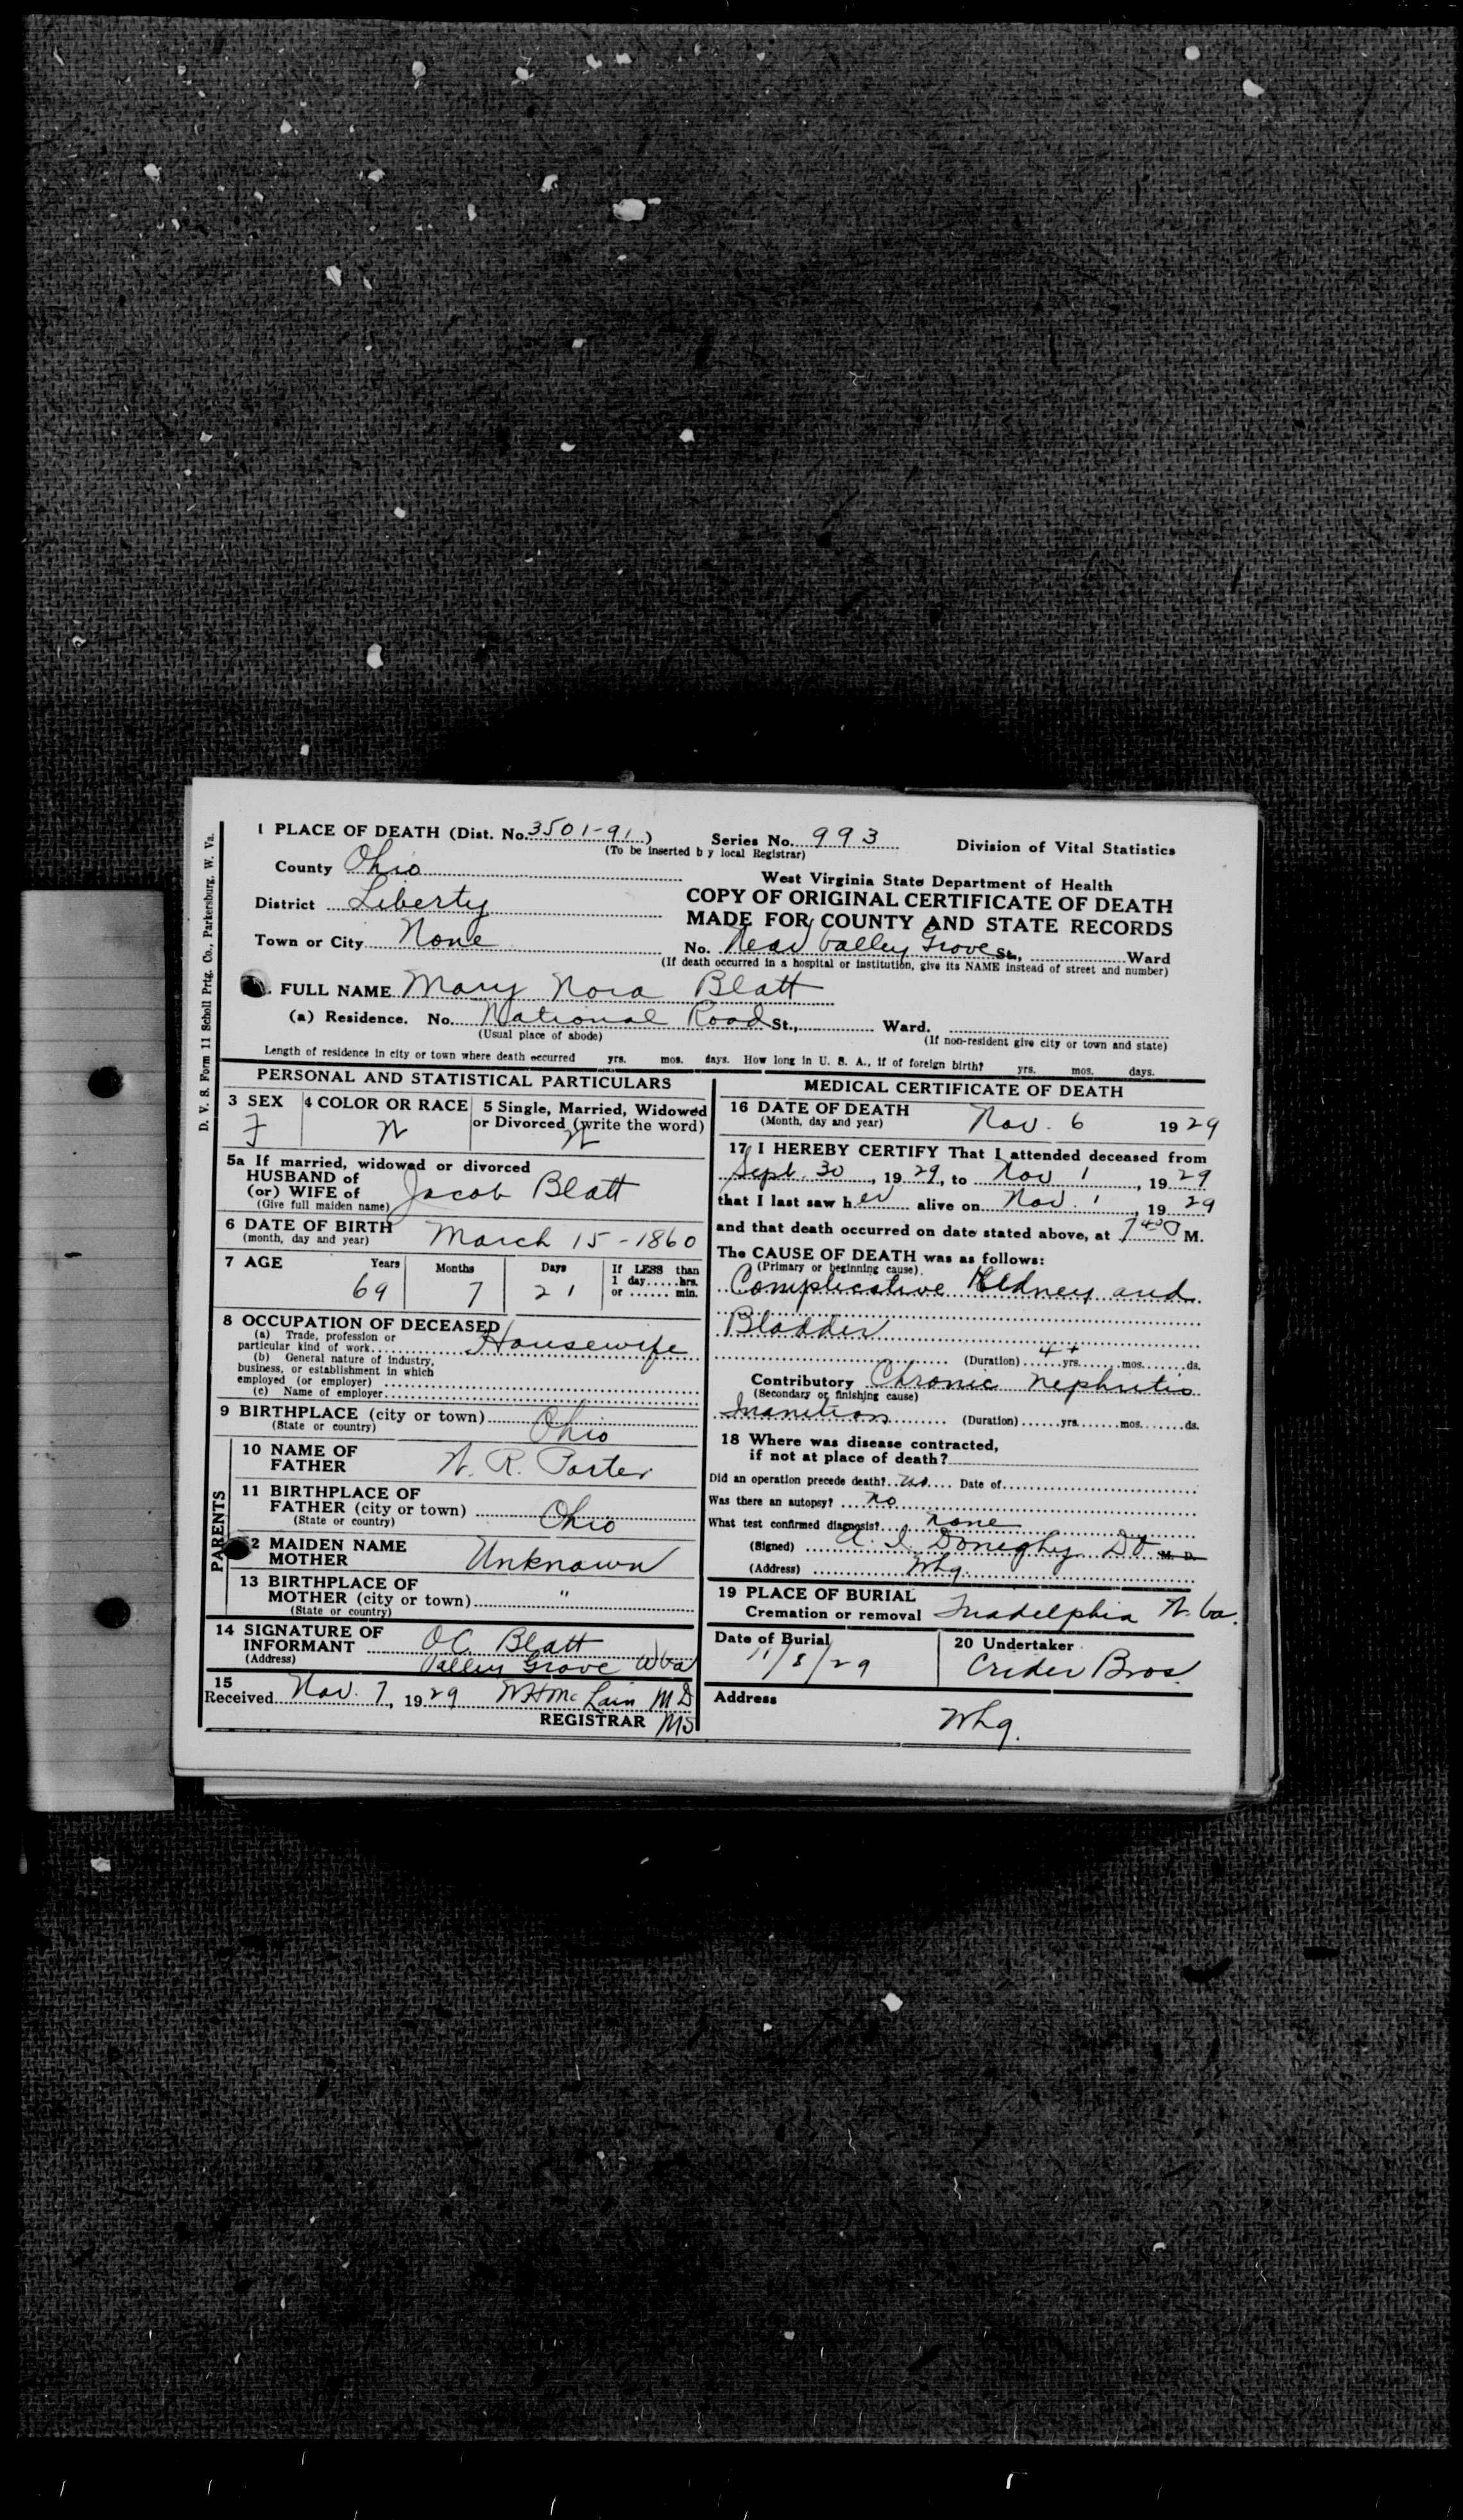 D. V. S. Form 11 Scholl Prtg. Co., Parkersburg, W. Va.
1 PLACE OF DEATH (Dist. No. 3501-91)
Series No. 993
Division of Vital Statistics
(To be inserted b y local Registrar)
County Ohio
West Virginia State Department of Health
District Liberty
COPY OF ORIGINAL CERTIFICATE OF DEATH
MADE FOR COUNTY AND STATE RECORDS
Town or City None
No. Near Valley Grove St., Ward
(If death occurred in a hospital or institution, give its NAME instead of street and number)
FULL NAME Mary Nora Blatt
(a) Residence. No. National Road St., Ward.
(Usual place of abode)
(If non-resident give city or town and state)
Length of residence in city or town where death occurred yrs. mos. days. How long in U. S. A., if of foreign birth? yrs. mos. days.
PERSONAL AND STATISTICAL PARTICULARS
3 SEX
F
4 COLOR OR RACE
W
5 Single, Married, Widowed
or Divorced (write the word)
W
5a If married, widowed or divorced
HUSBAND of
(or) WIFE of Jacob Blatt
(Give full maiden name)
6 DATE OF BIRTH March 15-1860
(month, day and year)
7 AGE Years Months Days If LESS than
1 day.....hrs.
or ...... min.
69 7 21
8 OCCUPATION OF DECEASED
(a) Trade, profession or
particular kind of work Housewife
(b) General nature of industry,
business, or establishment in which
employed (or employer)
(c) Name of employer
9 BIRTHPLACE (city or town) Ohio
(State or country)
PARENTS
10 NAME OF
FATHER W. R. Porter
11 BIRTHPLACE OF
FATHER (city or town) Ohio
(State or country)
2 MAIDEN NAME
MOTHER Unknown
13 BIRTHPLACE OF
MOTHER (city or town) "
(State or country)
14 SIGNATURE OF
INFORMANT O.C. Blatt
(Address) Valley Grove W Va
15
Received Nov. 7, 1929 W H Mc Lain M D
REGISTRAR MS
MEDICAL CERTIFICATE OF DEATH
16 DATE OF DEATH Nov. 6 1929
(Month, day and year)
17 I HEREBY CERTIFY That I attended deceased from
Sept. 30, 1929, to Nov 1, 1929
that I last saw her alive on Nov. 1, 1929
and that death occurred on date stated above, at 7 40 M.
The CAUSE OF DEATH was as follows:
(Primary or beginning cause)
Complicative Kidney and
Bladder
(Duration) 4+ yrs. mos. ds.
Contributory Chronic Nephritis
(Secondary or finishing cause)
Inanition (Duration) yrs. mos. ds.
18 Where was disease contracted,
if not at place of death?
Did an operation precede death? No Date of
Was there an autopsy? No
What test confirmed diagnosis? None
(Signed) A. I. Doneghy DO M. D.
(Address) Whg.
19 PLACE OF BURIAL
Cremation or removal Triadelphia W. Va.
Date of Burial
11/8/29
20 Undertaker
Crider Bros.
Address
Whg.